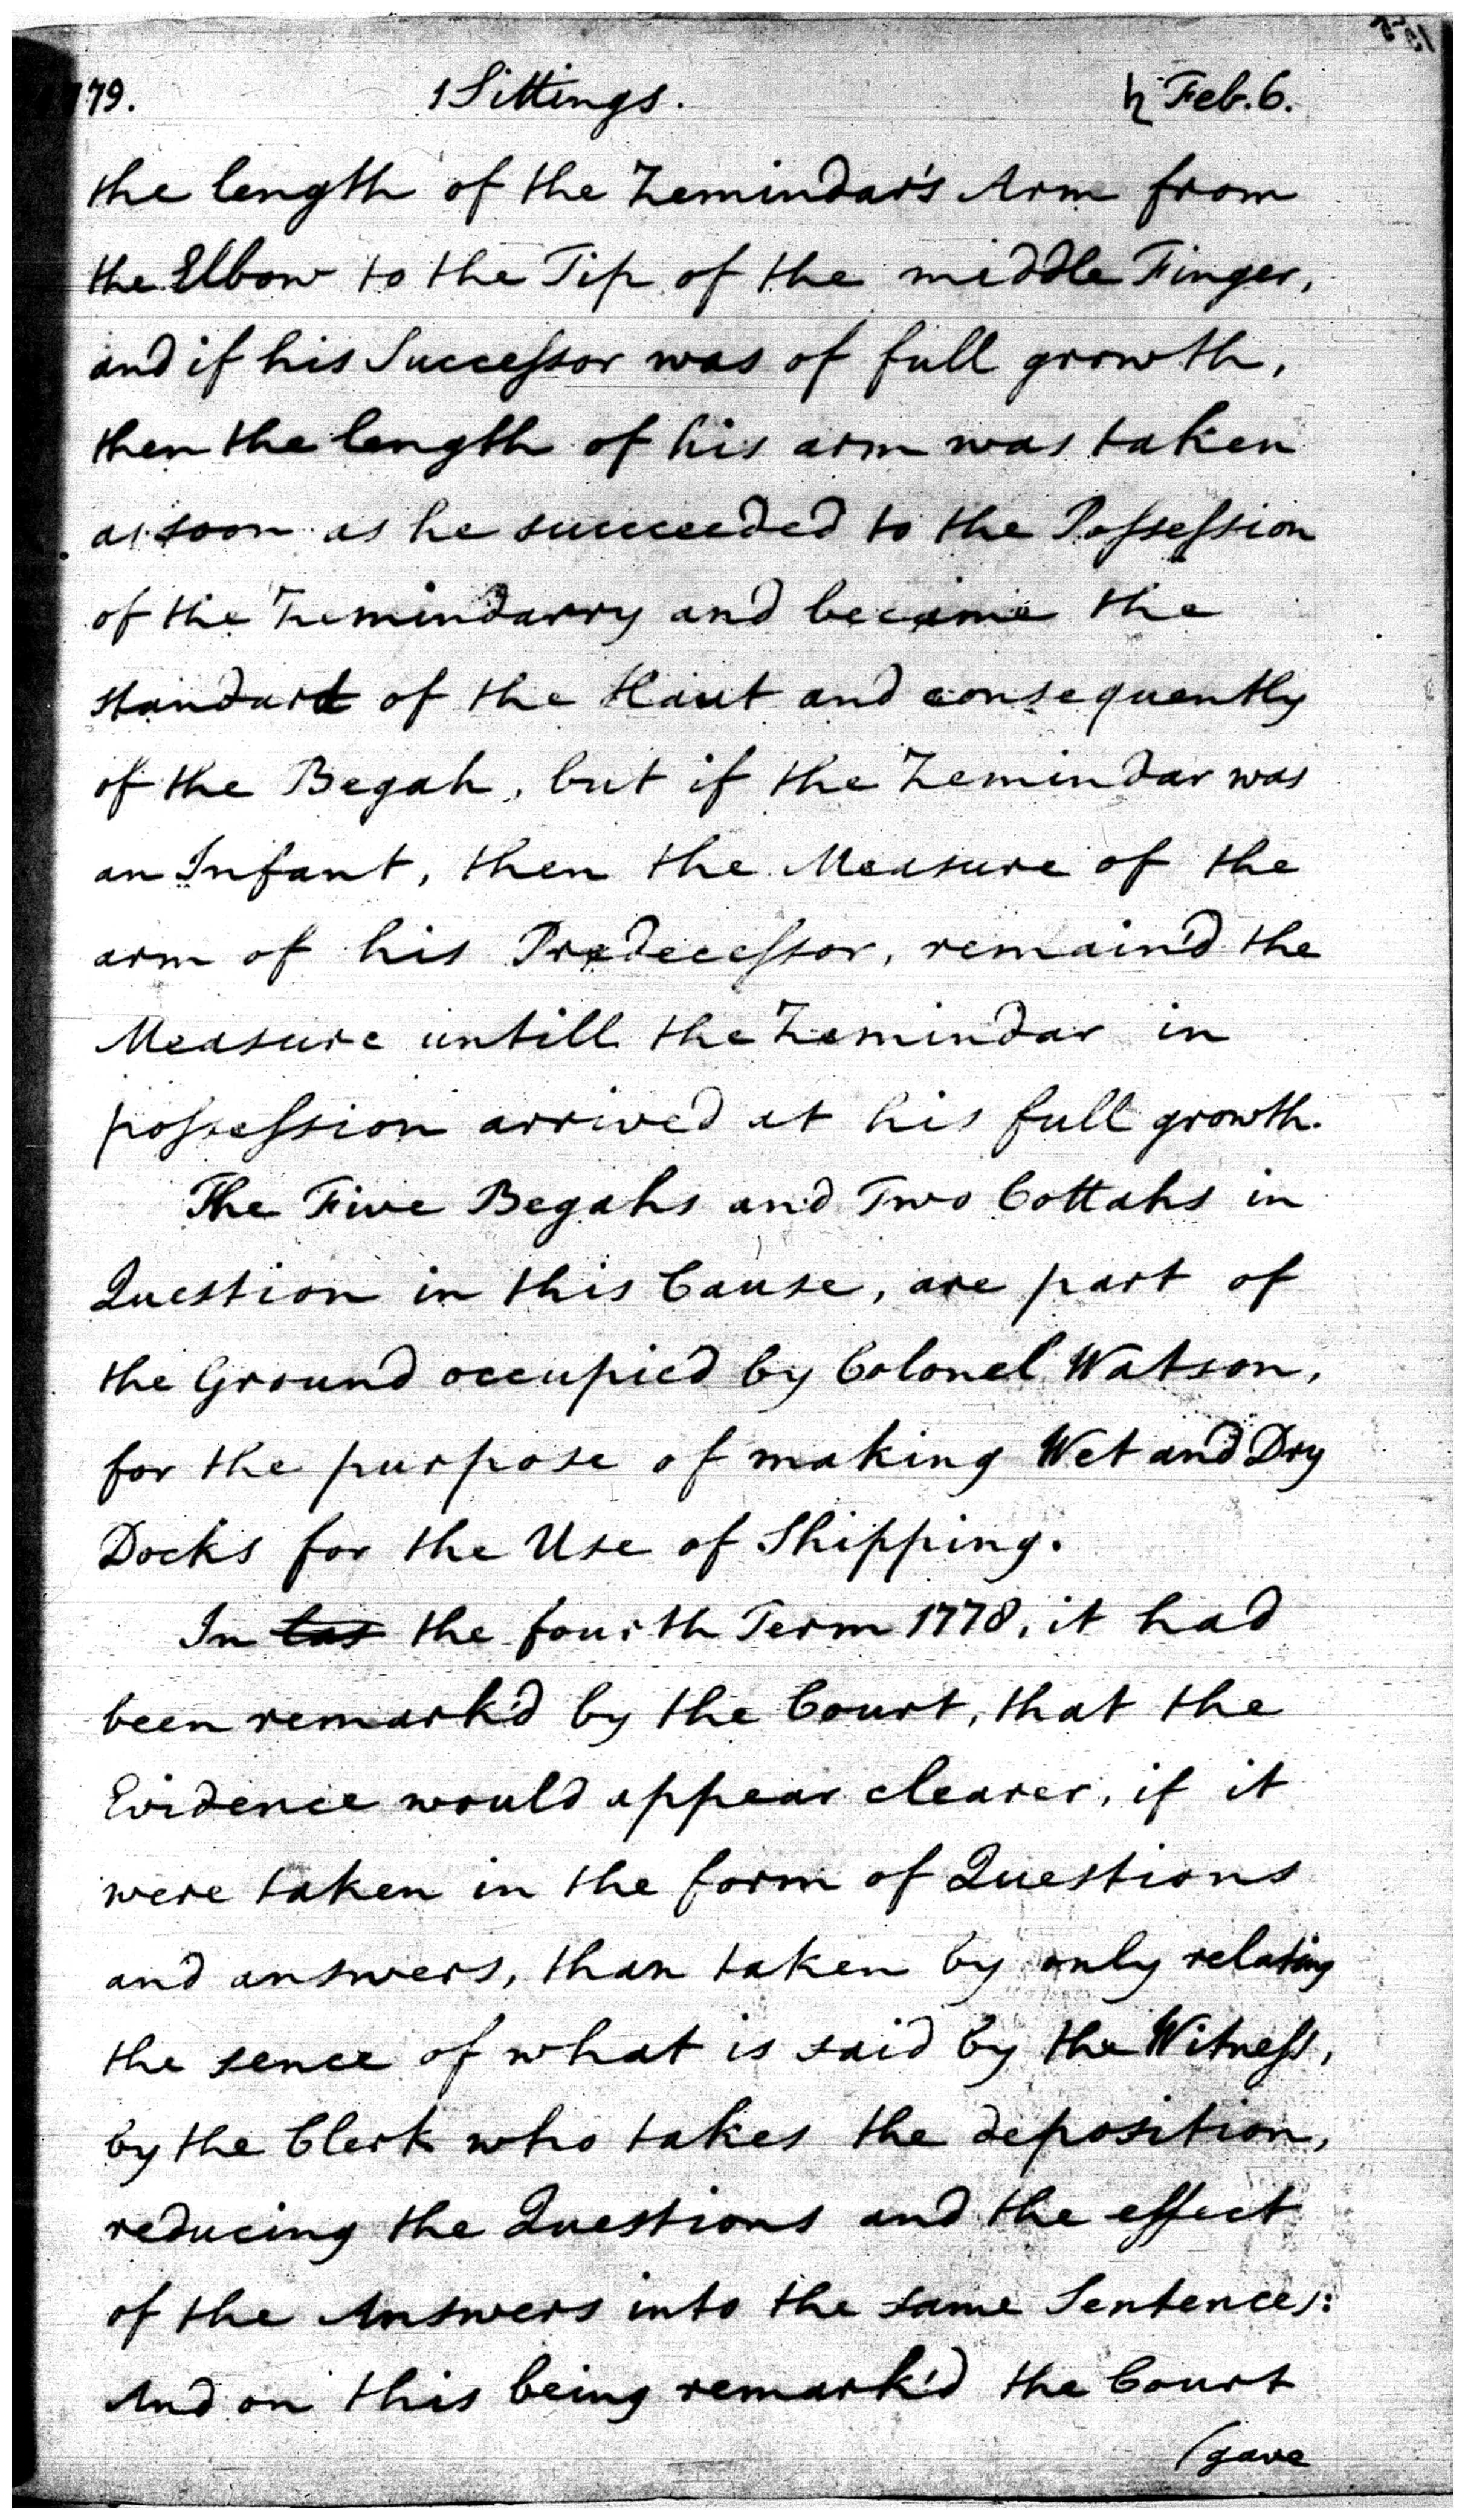 179. 1 Sittings. ♄ Feb. 6.
the length of the Zemindar's Arm from
the Elbow to the Tip of the middle Finger,
and if his Successor was of full growth,
then the length of his arm was taken
as soon as he succeeded to the Possession
of the Zemindarry and became the
standard of the Haut and consequently
of the Begah, but if the Zemindar was
an Infant, then the Measure of the
arm of his Predecessor, remain'd the
Measure untill the Zemindar in
possession arrived at his full growth.
The Five Begahs and Two Cottahs in
Question in this Cause, are part of
the Ground occupied by Colonel Watson,
for the purpose of making Wet and Dry
Docks for the Use of Shipping.
In las the fourth Term 1778, it had
been remark'd by the Court, that the
Evidence would appear clearer, if it
were taken in the form of Questions
and answers, than taken by only relating
the sence of what is said by the Witness,
by the Clerk who takes the deposition,
reducing the Questions and the effect
of the Answers into the same Sentences:
And on this being remark'd the Court
(gave